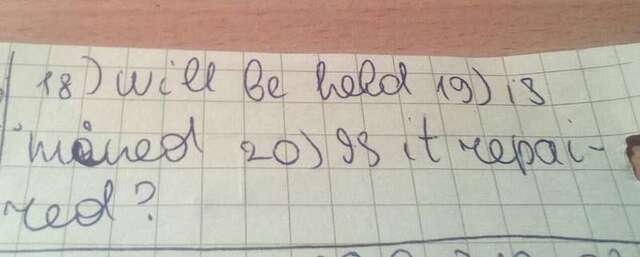 18) will be held 19) is
mined 20) Is it repai-
red?